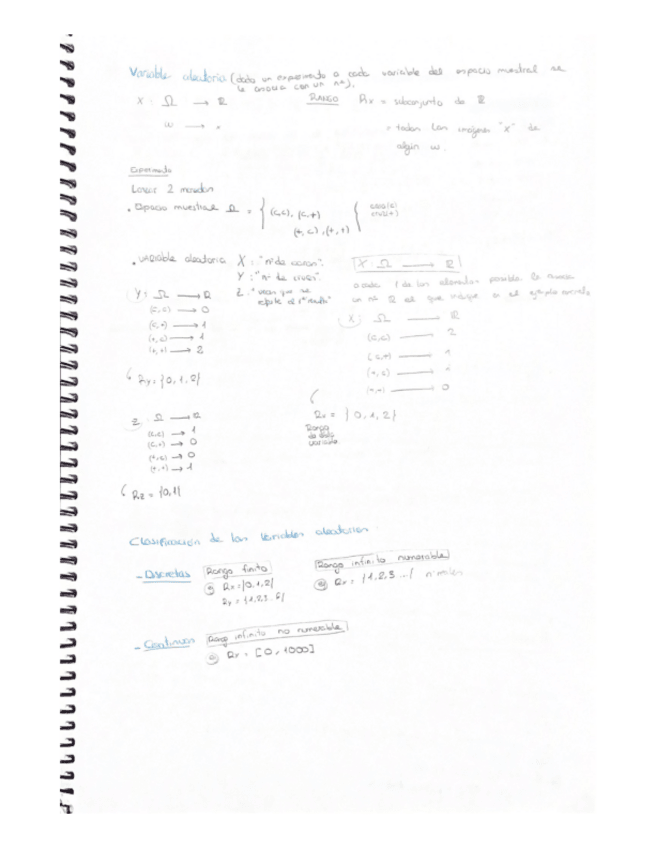 Variable aleatoria (dado un experimento a cada variable del espacio muestral se
le asocia con un nº).
X : Ω → ℝ
RANGO Rx = subconjunto de ℝ
ω → x
todas las imágenes "x" de
algún ω.
Experimento
Lanzar 2 monedas
• Espacio muestral Ω = { (c,c), (c,+)
(+,c), (+,+)
cara(c)
cruz(+)
• variable aleatoria X : "nº de caras".
Y : "nº de cruces".
Z : "veces que se
repite el 1er resultado"
X : Ω → ℝ
a cada 1 de los elementos posibles le asocia
un nº ℝ el que indique
Y : Ω → ℝ
(c,c) → 0
(c,+) → 1
(+,c) → 1
(+,+) → 2
Ry = {0,1,2}
X : Ω → ℝ
(c,c) → 2
(c,+) → 1
(+,c) → 1
(+,+) → 0
Rx = {0,1,2}
Rango
de esta
variable
Z : Ω → ℝ
(c,c) → 1
(c,+) → 0
(+,c) → 0
(+,+) → 1
Rz = {0,1}
Clasificación de las Variables aleatorias.
- Discretas Rango finito
Rx = {0,1,2}
Ry = {1,2,3...6}
Rango infinito numerable
Rx = {1,2,3...}
- Continuas Rango infinito no numerable
Rx = [0, 1000]